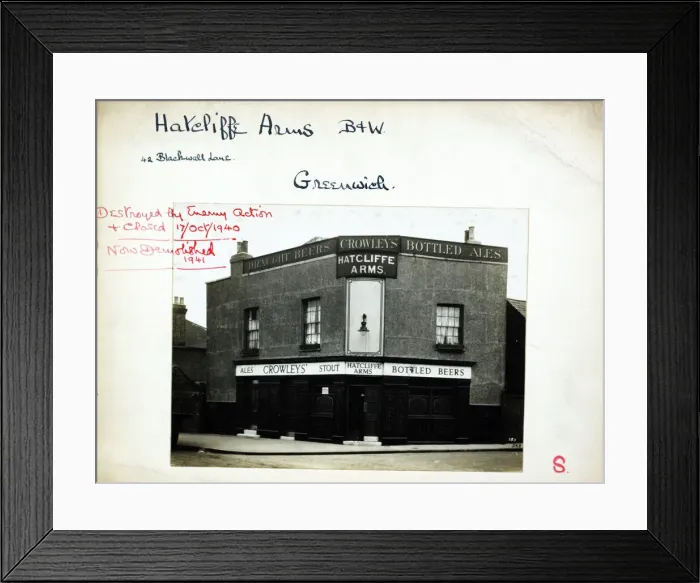 Hatcliffe Arms B+W.
42 Blackwall Lane.
Greenwich.
① Destroyed by Enemy Action
+ Closed 17/Oct/1940
Now Demolished
1941
DRAUGHT BEERS CROWLEYS BOTTLED ALES
HATCLIFFE
ARMS.
ALES CROWLEYS' STOUT HATCLIFFE ARMS BOTTLED BEERS
S.